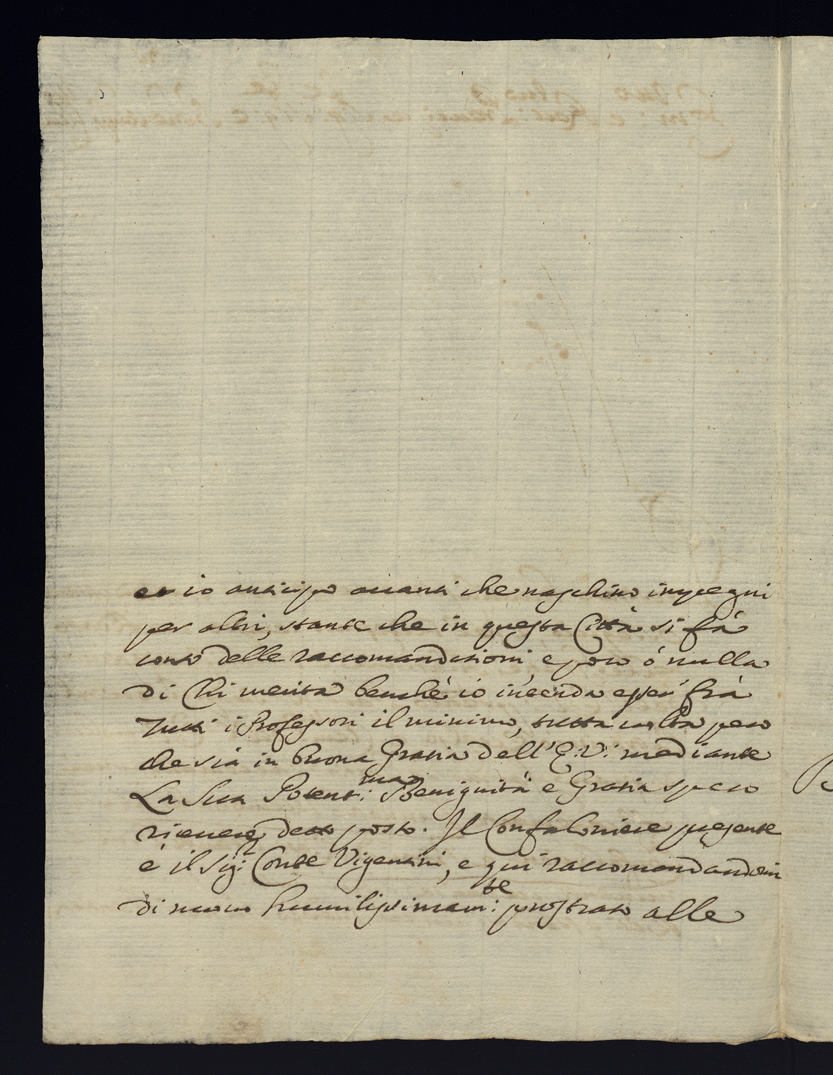 et io anticipo auanti che naschino impegni
per altri, stante che in questa Città si fà
conto delle raccomandationi, e poco ó nulla
di Chi merita benchè io
Tutti i Professori il minimo, tutta uolta pero
che sia in buona Gratia dell' E: V: mediante
La Sua Potent:ma Benignità e Gratia spero
detto posto. Il Confaloniere presente
è il Sig: Conte Vigentini, e qui raccomandandomi
di nuouo humilissimam:te prostrato alle